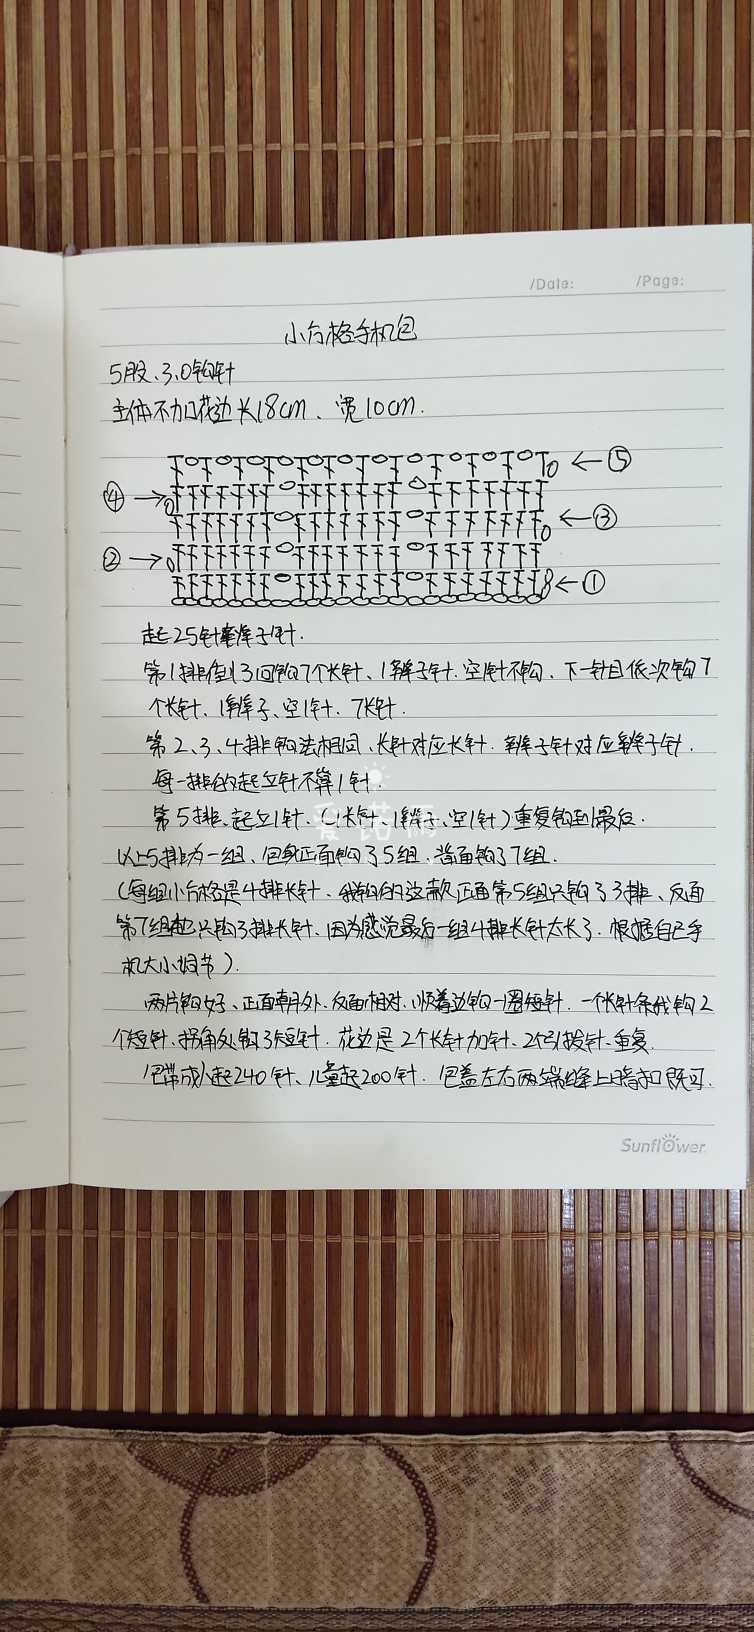 /Date: /Page:
小方格手机包
5股、3.0钩针
主体不加花边长18cm、宽10cm.
⑤
④
③
②
①
起25针辫子针.
第1排倒3回钩7个长针、1辫子针.空1针不钩、下一针目依次钩7
个长针、1辫子、空1针、7长针.
第2、3、4排钩法相同、长针对应长针.辫子针对应辫子针.
每一排的起立针不算1针.
爱诺丽
第5排、起立1针、(1长针、1辫子、空1针)重复钩到最后.
以上5排为一组、包身正面钩了5组、背面钩了7组.
(每组小方格是4排长针、我钩的这款正面第5组只钩了3排、反面
第7组也只钩了3排长针、因为感觉最后一组4排长针太长了.根据自己手
机大小调节).
两片钩好、正面朝外、反面相对、顺着边钩一圈短针.一个长针条我钩2
个短针、拐角处钩3短针.花边是2个长针加针、2个引拔针、重复.
包带成人起240针、儿童起200针.包盖左右两端缝上暗扣既可.
Sunflower